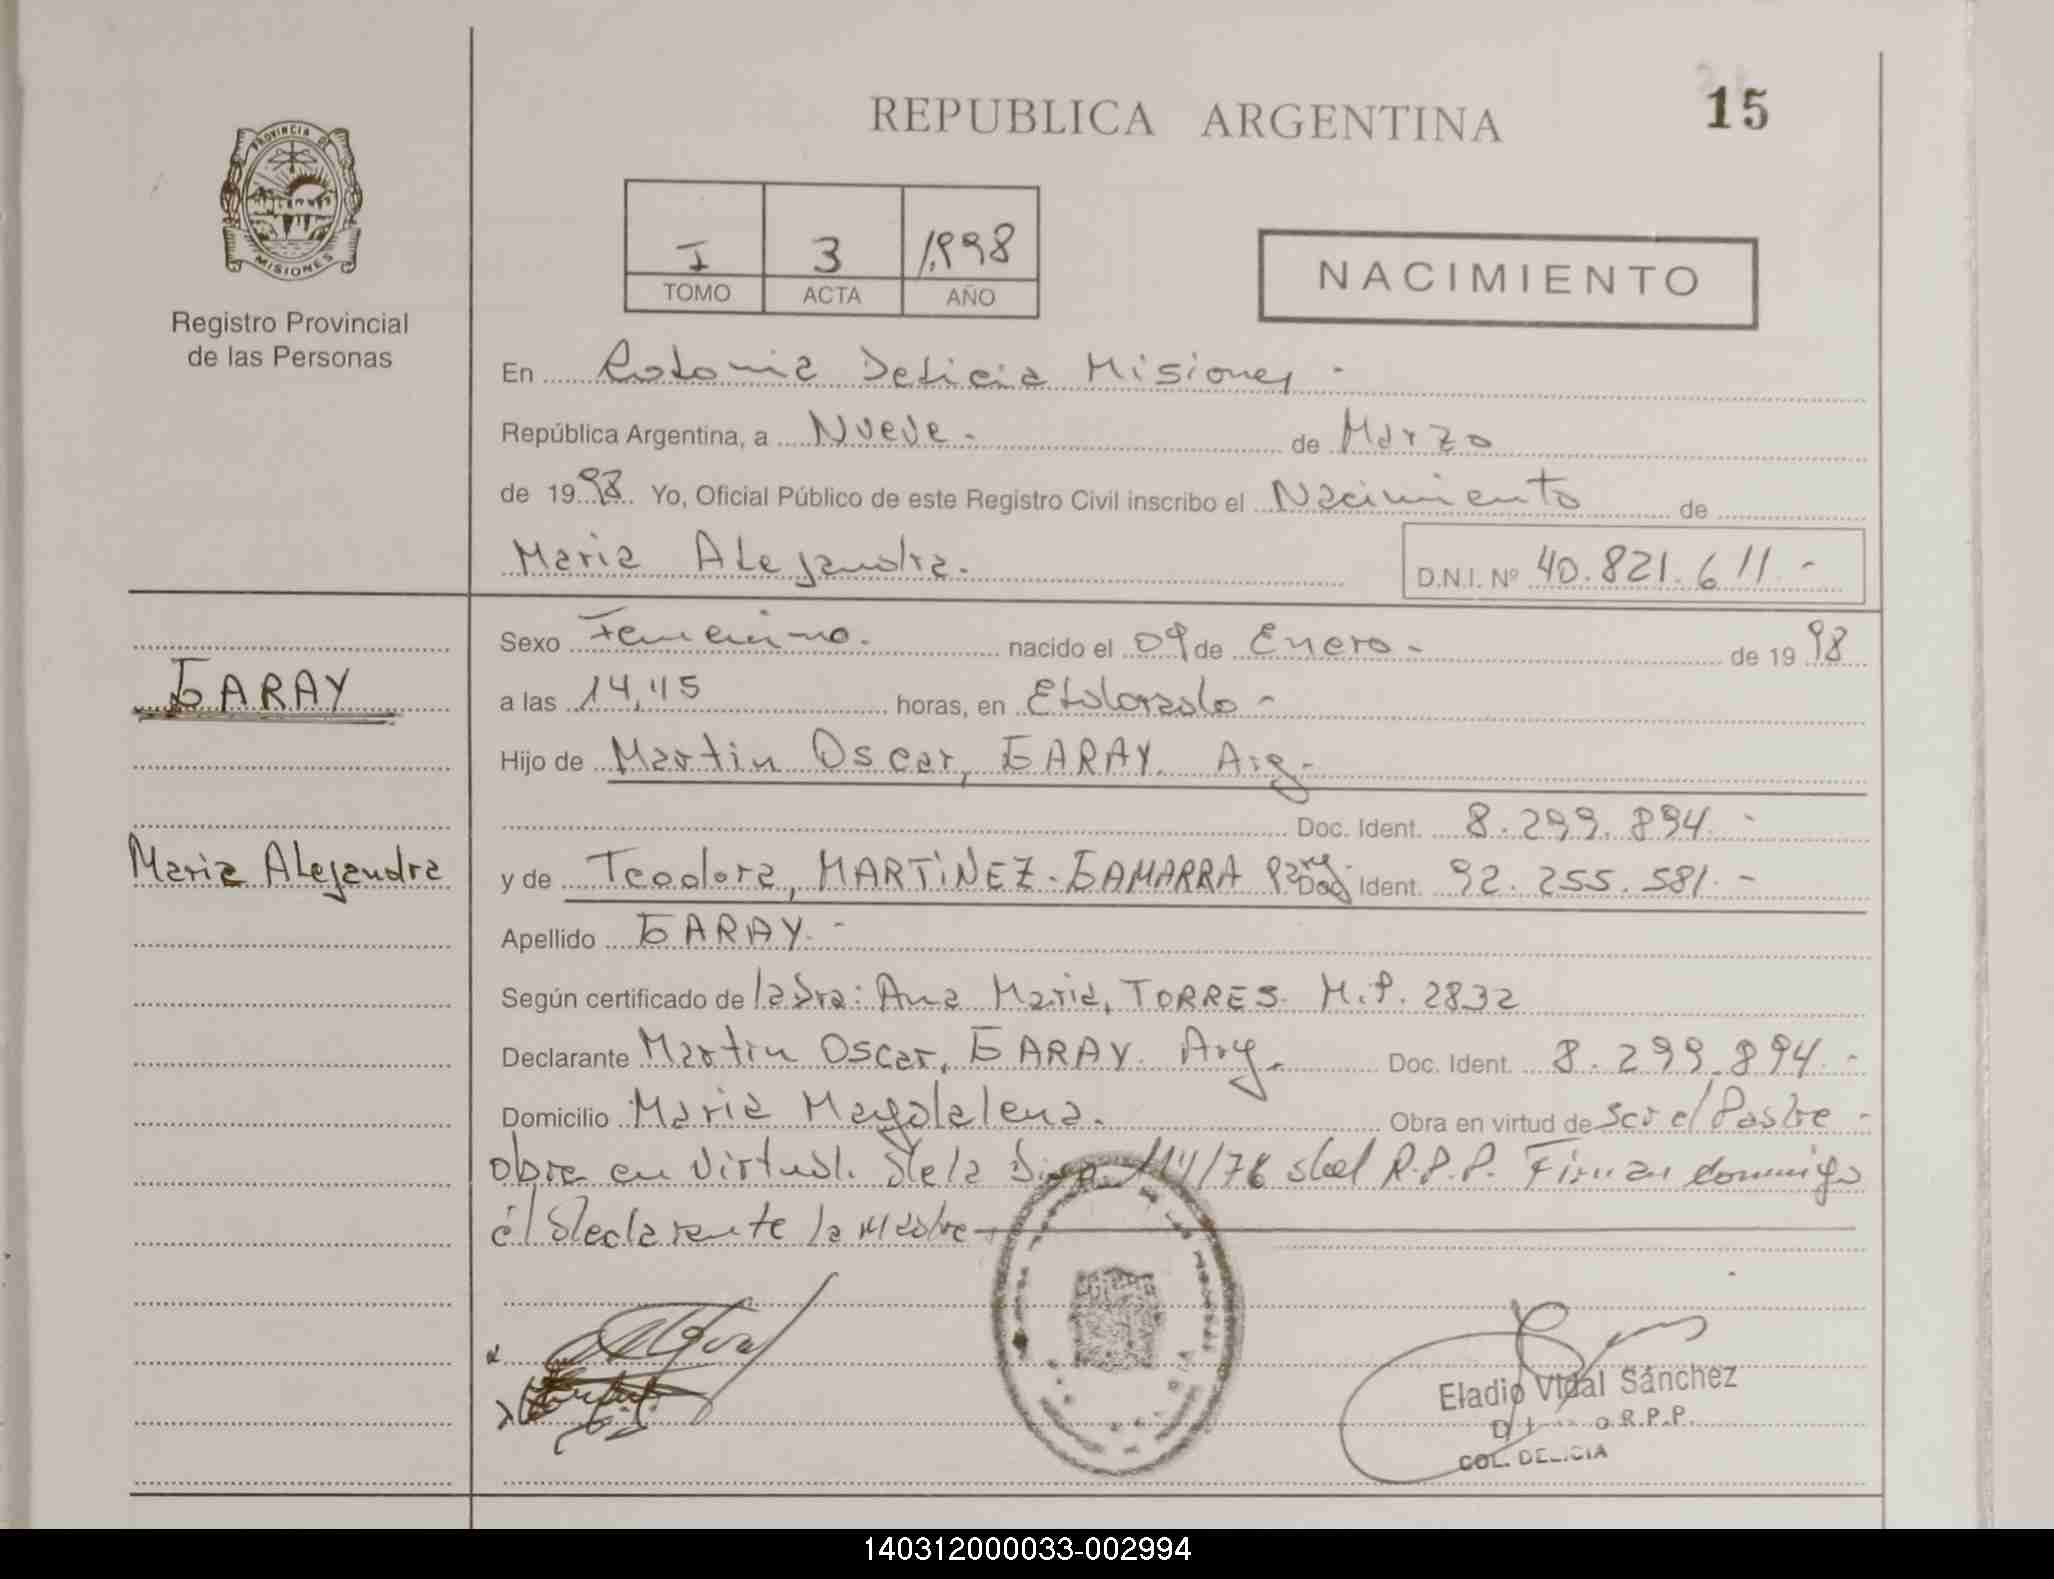 REPUBLICA ARGENTINA
15
PROVINCIA DE
MISIONES
Registro Provincial
de las Personas
I 3 1998
TOMO ACTA AÑO
NACIMIENTO
En Colonia Delicia Misiones -
República Argentina, a Nueve - de Marzo
de 1998 Yo, Oficial Público de este Registro Civil inscribo el Nacimiento de
Maria Alejandra. D.N.I. Nº 40.821.611.-
Sexo Femenino. nacido el 09 de Enero - de 1998
GARAY
a las 14,45 horas, en Eldorado -
Hijo de Martin Oscar, GARAY. Arg -
Doc. Ident. 8.299.894.-
Maria Alejandra
y de Teodora, MARTiNEZ - GAMARRA Parg Doc. Ident. 92.255.581.-
Apellido GARAY.-
Según certificado de la Dra: Ana Maria, TORRES. M.P. 2832
Declarante Martin Oscar, GARAY. Arg - Doc. Ident. 8.299.894.-
Domicilio Maria Magdalena. Obra en virtud de ser el Padre -
obra en virtud. de la Disp. 114/76 del R.P.P. Firman conmigo
él declarante la Madre -
Eladio Vidal Sánchez
R.P.P.
COL. DELICIA
140312000033-002994